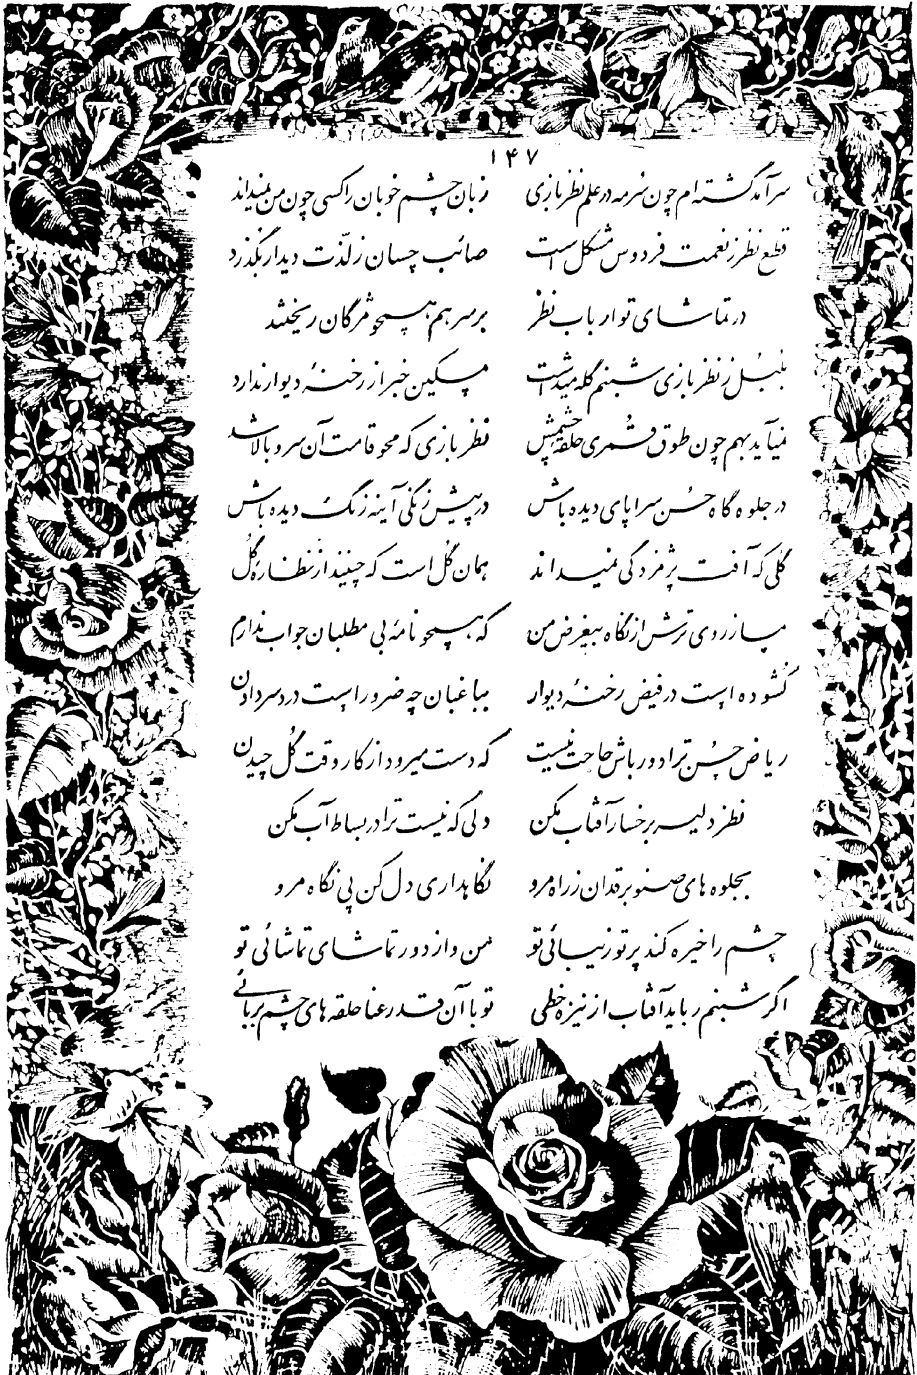 ۱۴۷
سرآمد گشته‌ام چون سرمه در علم نظربازی زبان چشم خوبان را کسی چون من نمیداند
قطع نظر ز نعمت فردوس مشکل است صائب چسان ز لذّت دیدار بگذرد
در تماشای تو ارباب نظر بر سر هم همچو مژگان ریختند
بلبل ز نظربازی شبنم گله میداشت مسکین خبر از رخنهٔ دیوار ندارد
نمیآید بهم چون طوق قمری حلقه چشمش نظربازی که محو قامت آن سرو بالا شد
در جلوه گاه حُسن سراپای دیده باش در پیش زنگی آینه زنگ دیده باش
گلی که آفت پژمردگی نمیداند همان گُل است که چینند از نظارهٔ گُل
مساز روی ترش از نگاه بیغرض من که همچو نامهٔ بی مطلبان جواب ندارم
گشوده است در فیض رخنهٔ دیوار بباغبان چه ضرور است دردسر دادن
ریاض حُسن ترا دور باش حاجت نیست که دست میرود از کار وقت گُل چیدن
نظر دلیر بر خسار آفتاب مکن دلی که نیست ترا در بساط آب مکن
بجلوه های صنوبر قدان ز راه مرو نگاهداری دل کن پی نگاه مرو
چشم را خیره کند پرتو زیبائی تو من و از دور تماشای تماشائی تو
اگر شبنم رباید آفتاب از نیزه خطی تو با آن قد رعنا حلقه های چشم بربائی